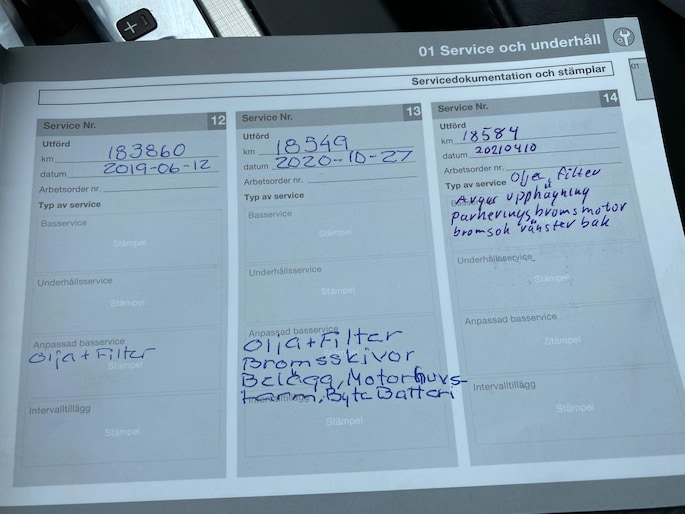 01 Service och underhåll
01
Servicedokumentation och stämplar
Service Nr. 12
Utförd
km 183860
datum 2019-06-12
Arbetsorder nr.
Typ av service
Basservice
Stämpel
Underhållsservice
Stämpel
Anpassad basservice
Olja + Filter
Stämpel
Intervalltillägg
Stämpel
Service Nr. 13
Utförd
km 18549
datum 2020-10-27
Arbetsorder nr.
Typ av service
Basservice
Stämpel
Underhållsservice
Stämpel
Anpassad basservice
Olja + Filter
Bromsskivor
Belägg, Motorhuvs-
larm, Byta Batteri
Intervalltillägg
Stämpel
Service Nr. 14
Utförd
km 18584
datum 20210410
Arbetsorder nr.
Typ av service Olja, filter
Avgas upphägning
parkerings bromsmotor
bromsok vänster bak
Underhållsservice
Stämpel
Anpassad basservice
Stämpel
Intervalltillägg
Stämpel